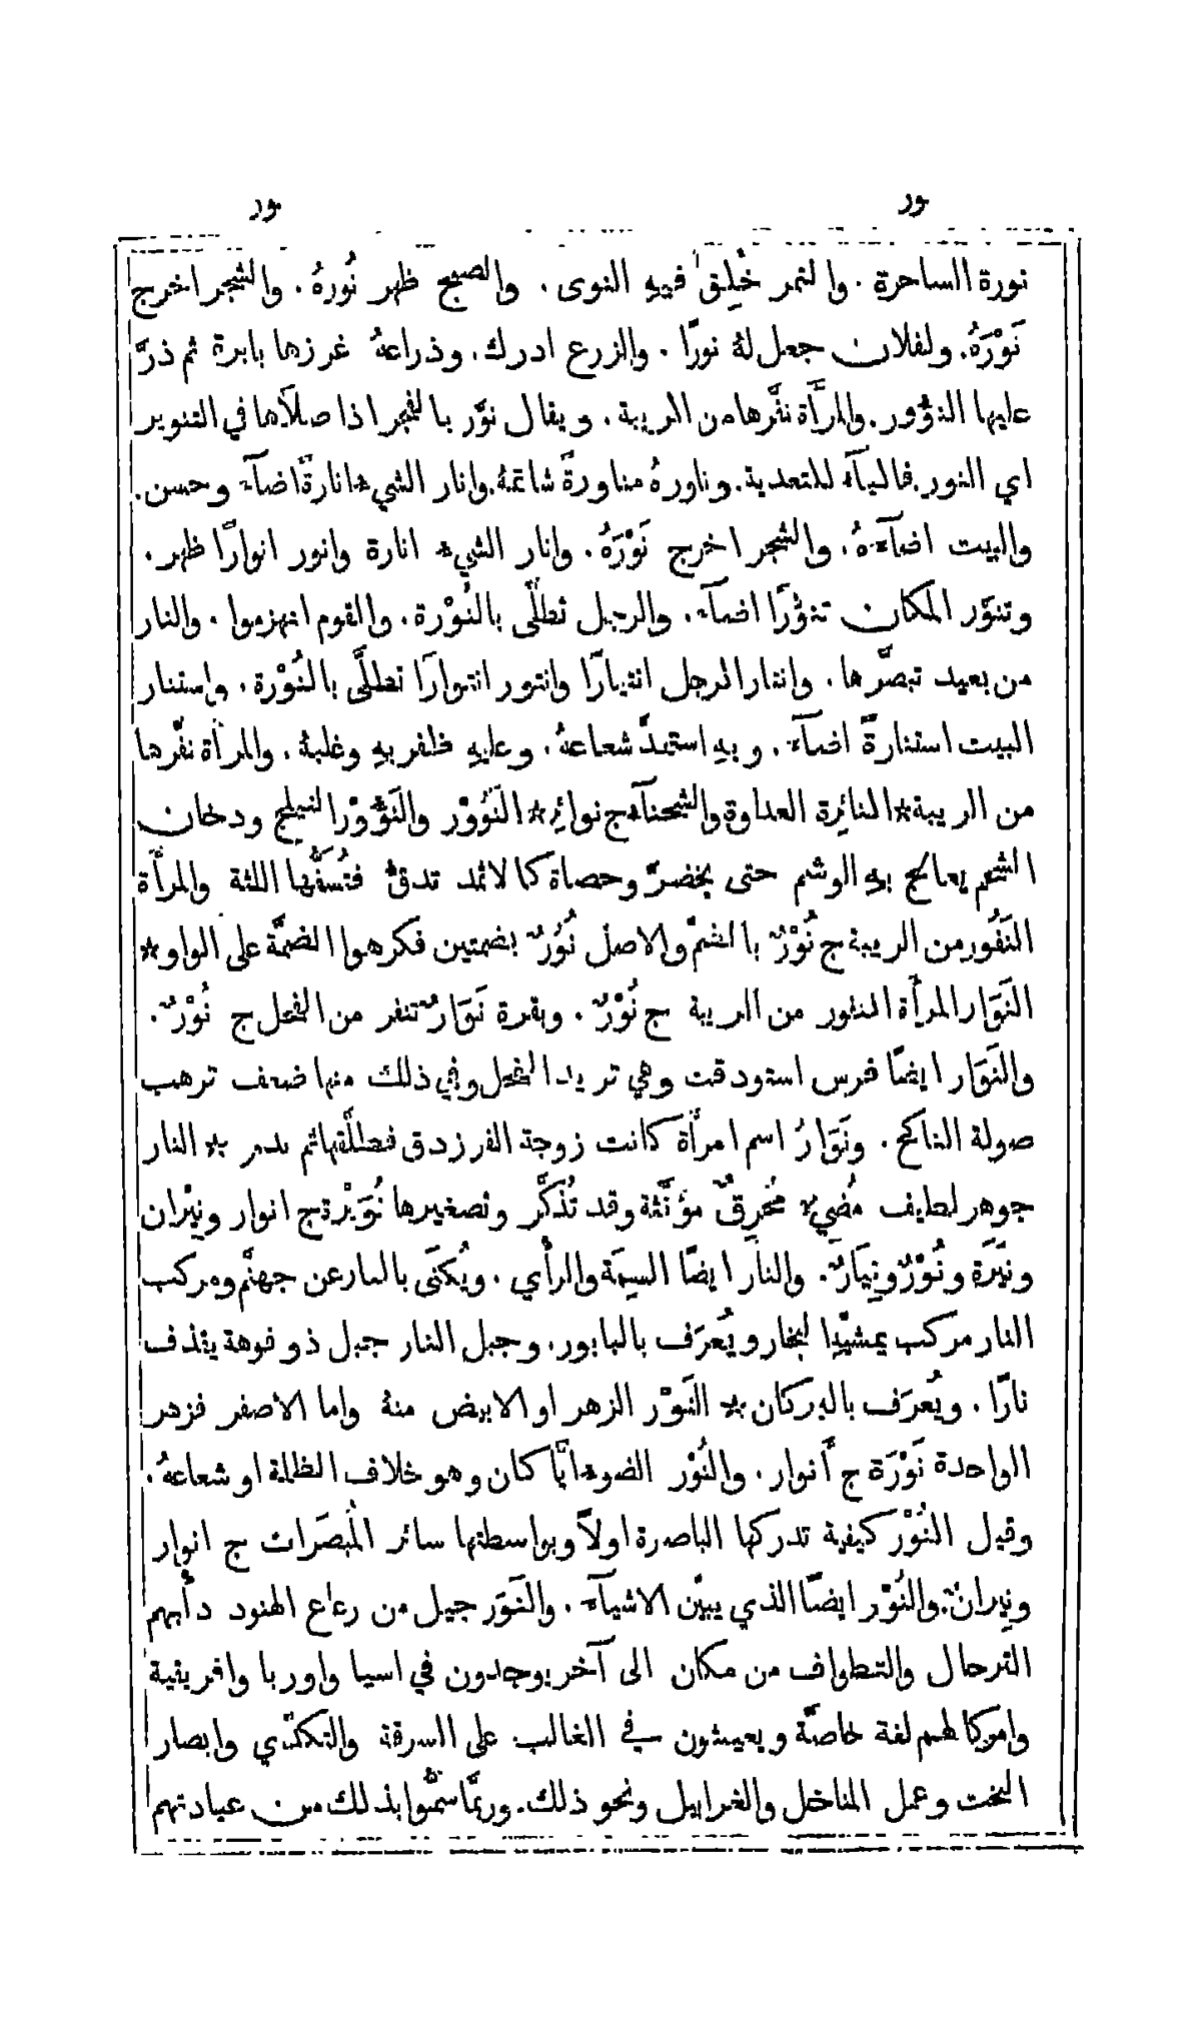 نور نور
نورة الساحرة . والتمر خُلِق فيهِ النوى . والصبح ظهر نُورهُ . والشجر اخرج
نَوْرَهُ . ولفلان جعل لهُ نورًا . والزرع ادرك . وذراعهُ غرزها بابرة ثم ذرَّ
عليها النؤُور . والمرأَة نفَّرها من الريبة . ويقال نوَّر بالفجر اذا صلاَّها في التنوير
اي النور . فالبآء للتعدية . وناورهُ مناورةً شاتمهُ . وانار الشيء انارةً اضآء وحسن .
والبيت اضآءَهُ . والشجر اخرج نَوْرَهُ . وانار الشيء انارة وانور انوارًا ظهر .
وتنوَّر المكان تنوُّرًا اضآء . والرجل تطلَّى بالنُوْرة . والقوم انهزموا . والنار
من بعيد تبصَّرها . وانتار الرجل انتيارًا وانتور انتوارًا تطلَّى بالنُوْرة . واستنار
البيت استنارةً اضآء . وبهِ استمدَّ شعاعهُ . وعليهِ ظفر بهِ وغلبهُ . والمرأَة نفَّرها
من الريبة * النائِرة العداوة والشحنآء ج نوائِر * النَوُوْر والنَؤُوْر النيلج ودخان
الشحم يعالَج بهِ الوشم حتى يخضرَّ وحصاة كالاثمد تدقُّ فتُسَفُّها اللثة والمرأَة
النَفُور من الريبة ج نُوْرٌ بالضمّ والاصل نُوُرٌ بضمتين فكرهوا الضمَّة على الواو *
النَوَار المرأَة النفور من الريبة ج نُوْرٌ . وبقرة نَوَارٌ تنفر من الفحل ج نُوْرٌ .
والنَوَار ايضًا فرس استودقت وهي تريد الفحل وفي ذلك منها ضعف ترهب
صولة الناكح . ونَوَارُ اسم امرأَة كانت زوجة الفرزدق فطلَّقها ثم ندم * النار
جوهر لطيف مُضِيء مُحْرِقٌ مؤَنَّثة وقد تُذَكَّر وتصغيرها نُوَيْرة ج انوار ونِيْران
ونِيَرَة ونُوْرٌ ونِيَارٌ . والنار ايضًا السِمَة والرأْي . ويُكنَى بالنار عن جهنَّم ومركب
النار مركب يمشيِّهِ البخار ويُعرَف بالبابور . وجبل النار جبل ذو فوهة يقذف
نارًا . ويُعرَف بالبركان * النَوْر الزهر او الابيض منهُ واما الاصفر فزهر
الواحدة نَوْرَة ج أَنوار . والنُوْر الضوء ايًّا كان وهو خلاف الظلمة او شعاعهُ .
وقيل النُوْر كيفية تدركها الباصرة اولاً وبواسطتها سائر المُبصَرات ج انوار
ونِيرانٌ . والنُوْر ايضًا الذي يبيّن الاشيآء . والنَوَر جيل من رعاع الهنود دأْبهم
الترحال والتطواف من مكان الى آخر يوجدون في اسيا واوربا وافريقية
وامركا لهم لغة خاصَّة ويعيشون في الغالب على السرقة والتكدّي وابصار
البخت وعمل المناخل والغرابيل ونحو ذلك . وربَّما سُمُّوا بذلك من عبادتهم